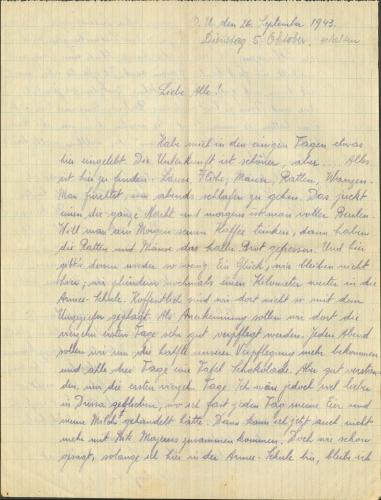 O. U. den 26. September 1943.
Dienstag 5. Oktober, erhalten
Liebe Alle!
Habe mich in den einigen Tagen etwas
hier eingelebt. Die Unterkunft ist schöner, aber ... Alles
ist hier zu finden. Läuse, Flöhe, Mäuse, Ratten, Wanzen.
Man fürchtet, um abends schlafen zu gehen. Das juckt
einen die ganze Nacht und morgens ist man voller Beulen.
Will man am Morgen seinen Kaffee trinken, dann haben
die Ratten und Mäuse das halbe Brot gefressen. Und hier
gibt's dessen wieder so wenig. Ein Glück, wir bleiben nicht
hier, wir plündern nochmals einen Kilometer weiter in die
Armee-Schule. Hoffentlich sind wir dort nicht so mit dem
Ungeziefer geplagt. Als Anerkennung sollen wir dort die
vierzehn ersten Tage sehr gut verpflegt werden. Jeden Abend
sollen wir um die Hälfte unserer Verpflegung mehr bekommen
und alle drei Tage eine Tafel Schokolade. Aber gut verstan-
den, nur die ersten vierzehn Tage. Ich wäre jedoch viel lieber
in Drissa geblieben, wo ich fast jeden Tag meine Eier und
meine Milch gehandelt hätte. Dann kann ich jetzt auch nicht
mehr mit zusammen kommen. Doch wie schon
gesagt, solange ich hier in der Armee-Schule bin, bleibe ich